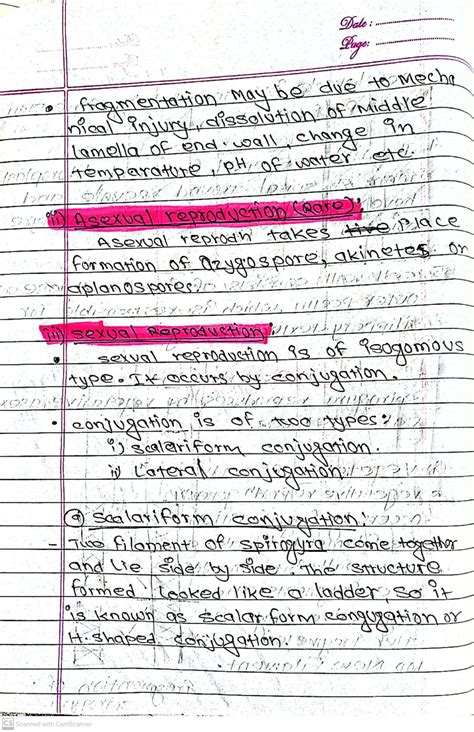 Date :
Page:
• fragmentation may be due to mecha
nical injury, dissolution of middle
lamella of end wall, change in
temparature, pH of water etc.
ii) Asexual reproduction (Rare):
Asexual reprodn takes place
formation of azygospore, akinetes or
aplanospores.
iii) sexual Reproduction:
• sexual reproduction is of isogomous
type. It occurs by conjugation.
• conjugation is of two types:
i) scalariform conjugation.
ii) Lateral conjugation.
@ scalariform conjugation:
- Two filament of spirogyra come together
and lie side by side. The structure
formed looked like a ladder so it
is known as scalar form congugation or
H-shaped conjugation.
CS Scanned with CamScanner